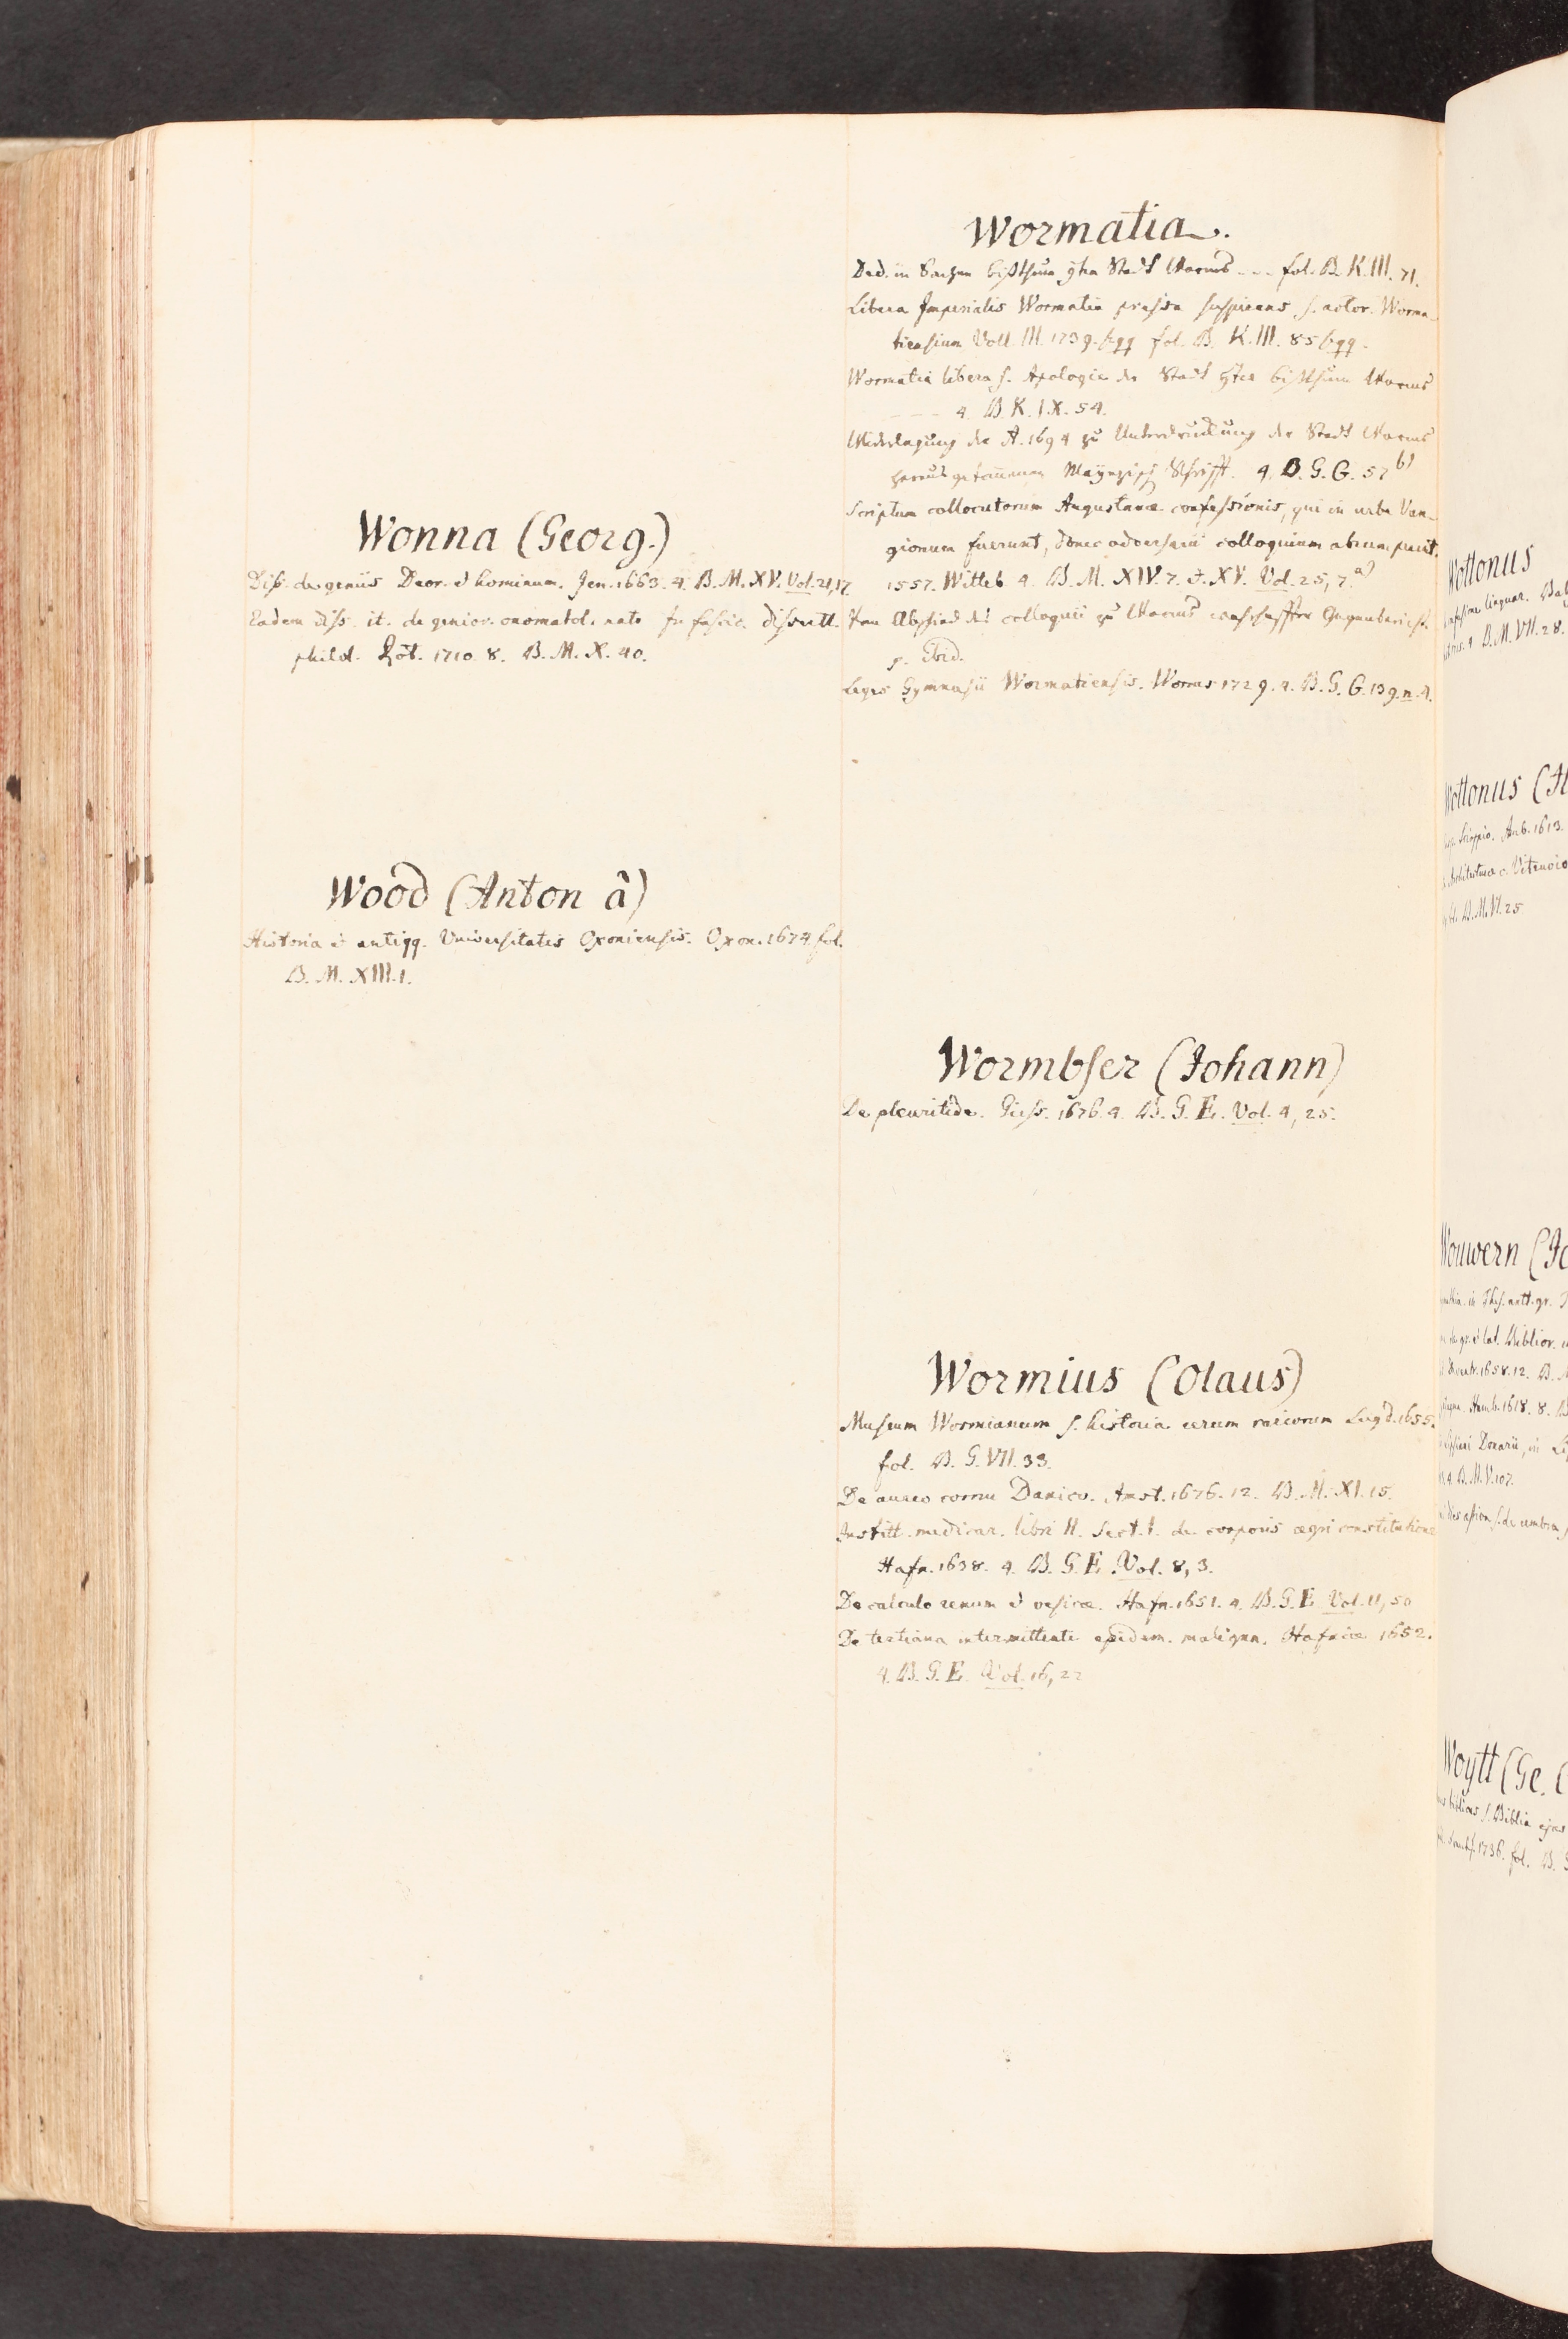 Wonna (Georg.)
Diss. de geniis Deor. et hominum. Jen. 1663. 4. B. M. XV. Vol. 21,17.
Eadem diss. it. de genior. onomatol. nate In fascic. dissertt.
philol. 1710. 8. B. M. X. 40.
Wood (Anton â)
Historia et antiqq. Universitatis Oxoniensis. Oxon. 1674. fol.
B. M. XIII. 1.
Wormatia.
Ded. in Sachen Bißthum gten Stadt Worms - - - fol. B. K. III. 71.
Libera Imperialis Wormatia pressa suspirans. s. actor. Worma-
tiensium Voll. III. 1739. sqq fol. B. K. III. 85 sqq.
Wormatia libera s. Apologie der Stadt gten Bißthum Worms
- - - - 4. B. K. IX. 54.
Wiederlegung der A. 1694 zu Unterdruckung der Stadt Worms
heraus gekommenen Maynzisch Schrifft. 4. B. G. G. 57 b)
Scriptum collocutorum Augustanæ confessionis, qui in urbe Van-
gionum fuerunt, donec adversarii colloquium abrumperent.
1557. Witteb 4. B. M. XIV. 7. et. XV. Vol. 25, 7. a)
Abschied des colloquii zu Worms Gegenbericht.
s. Ibid.
Leges Gymnasii Wormatiensis. Worms 1729. 4. B. G. G. 139. n. 4.
Wormbser (Johann)
De pleuritide. Giess. 1676. 4. B. G. E. Vol. 4, 25.
Wormius (Olaus)
Museum Wormianum s. historia rerum rariorum Lugd. 1655.
fol. B. G. VII. 33.
De aureo cornu Danico. Amst. 1676. 12. B. M. XI. 15.
Institt. medicar. libri II. Sect. I. de corporis ægri constitutione
Hafn. 1638. 4. B. G. E. Vol. 8, 3.
De calculo renum et vesicæ. Hafn. 1651. 4. B. G. E. Vol. 11, 50
De tertiana intermittente epidem. maligna. Hafniæ 1652.
4. B. G. E. Vol. 16, 22
Wottonus
linguar.
4 B. M. VII. 28.
Wottonus (H
Scioppio. Amb. 1613.
Architectura c. Vitruvio
B. M. VI. 25
Wouwern (Jo
in Thes. antt. gr.
gr. et lat. Biblior.
1658. 12. B. M
Hamb. 1618. 8. B
Donarii, in
4. B. M. V. 107.
s. de umbra
Woytt (Ge. C
biblicus s. Biblia ejus
1736. fol. B. G